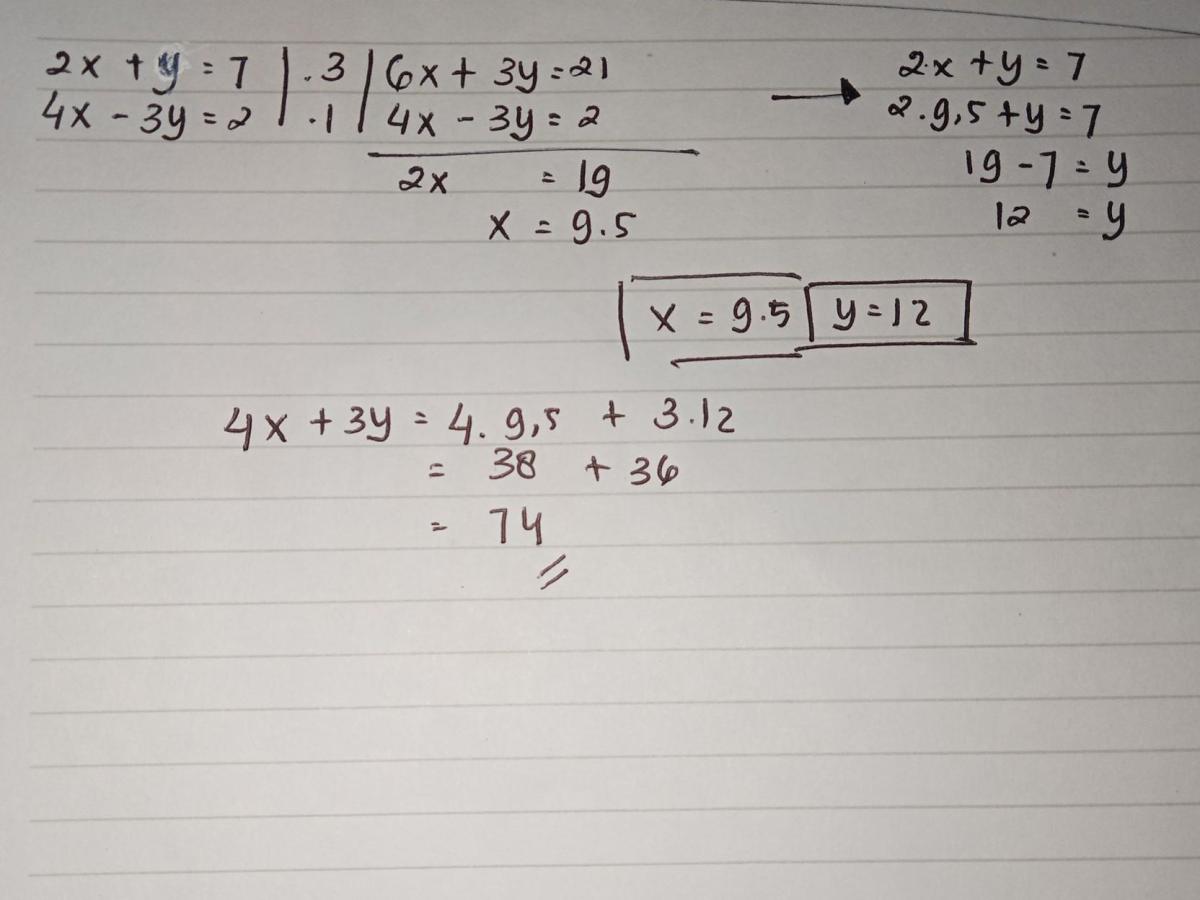 2x + y = 7 | . 3 | 6x + 3y = 21
4x - 3y = 2 | . 1 | 4x - 3y = 2
2x = 19
x = 9.5
2x + y = 7
2 . 9,5 + y = 7
19 - 7 = y
12 = y
x = 9.5 y = 12
4x + 3y = 4 . 9,5 + 3.12
= 38 + 36
= 74